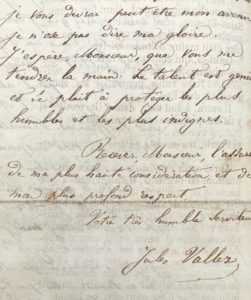 je vous devrai peut être mon avenir
je n'ose pas dire ma gloire.
J'espère, Monsieur, que vous me
tendrez la main. Le talent est géné
et se plaît à protéger les plus
humbles et les plus indignes.
Recevez, Monsieur, l'assura
de ma plus haute considération et de
mon plus profond respect
Votre très humble Servite
Jules Vallez